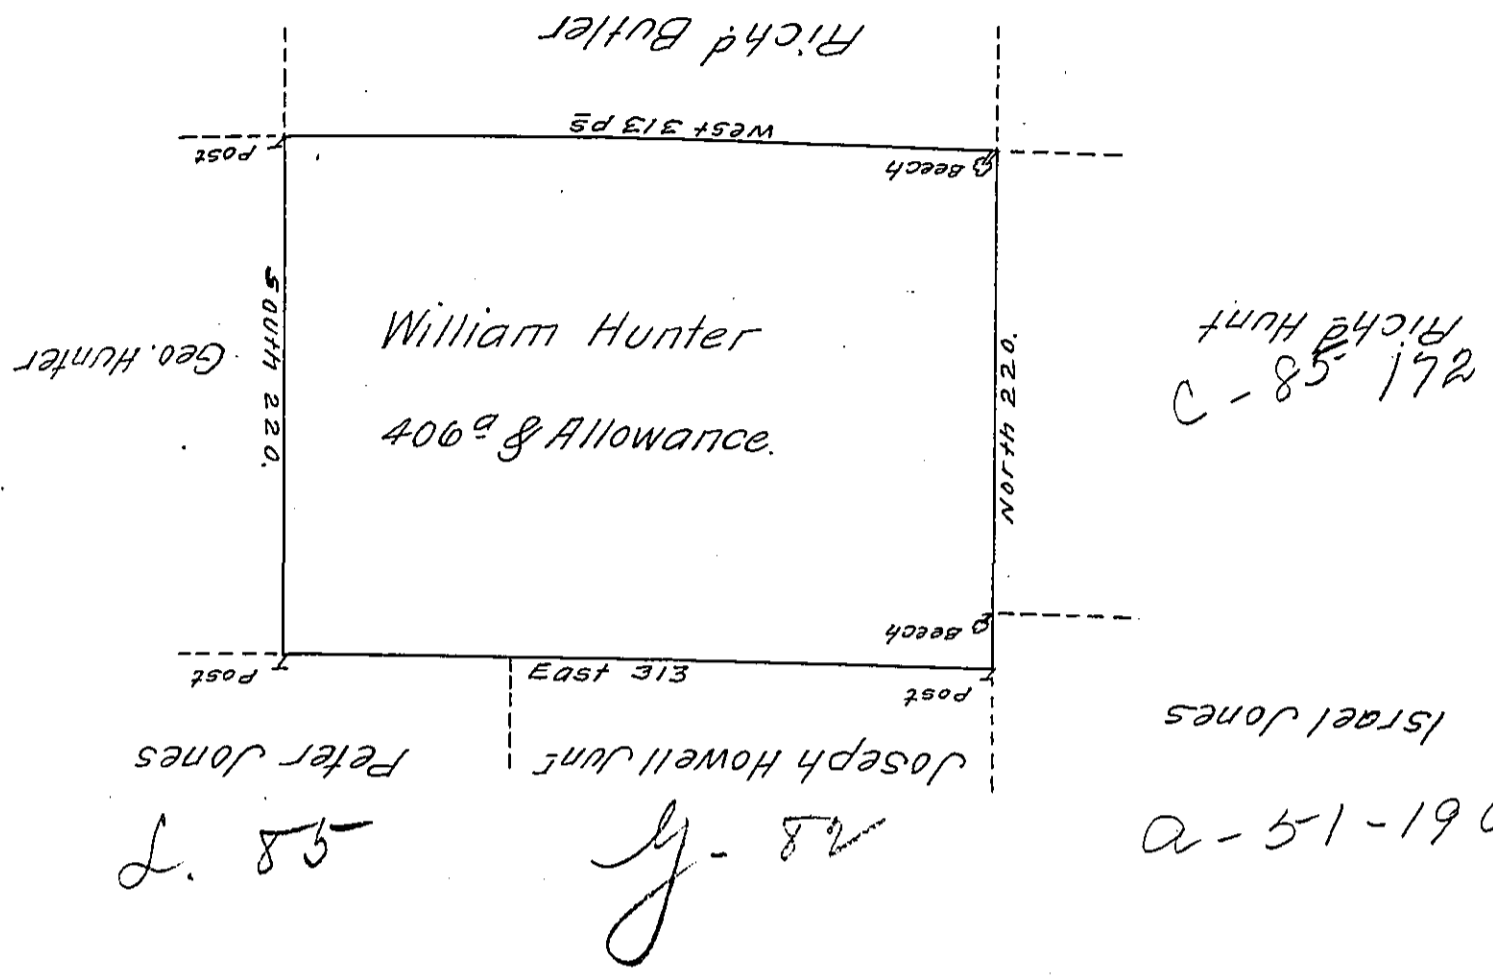 Rich.d Butler
West 313 ps
Post
Beech
South 220.
Geo. Hunter
William Hunter
406 a & Allowance.
North 220.
Rich.d Hunt
C - 85 172
Beech
Post
East 313
Post
Peter Jones
Joseph Howell Junr
Israel Jones
L. 85
y - 82
a - 51 - 19